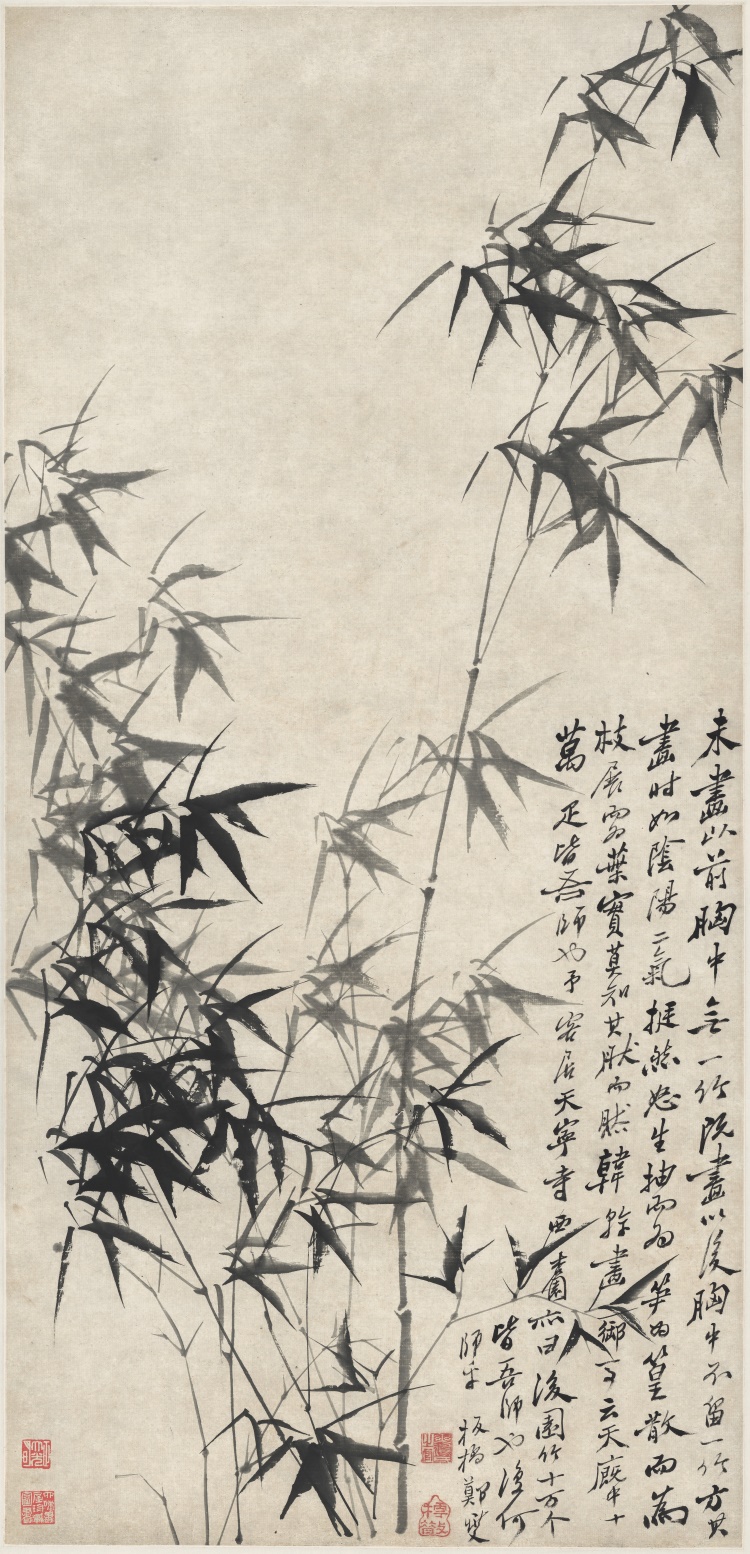 未畫以前胸中無一竹既畫以後胸中不留一竹方其
畫时如陰陽二氣挺然怒生抽而為笋為篁散而為
枝展而為葉實莫知其然而然韓幹畫御马云天厩中十
萬疋皆吾師也予客居天寧寺西杏園亦曰後園竹十万个
皆吾師也復何
師乎板橋鄭燮